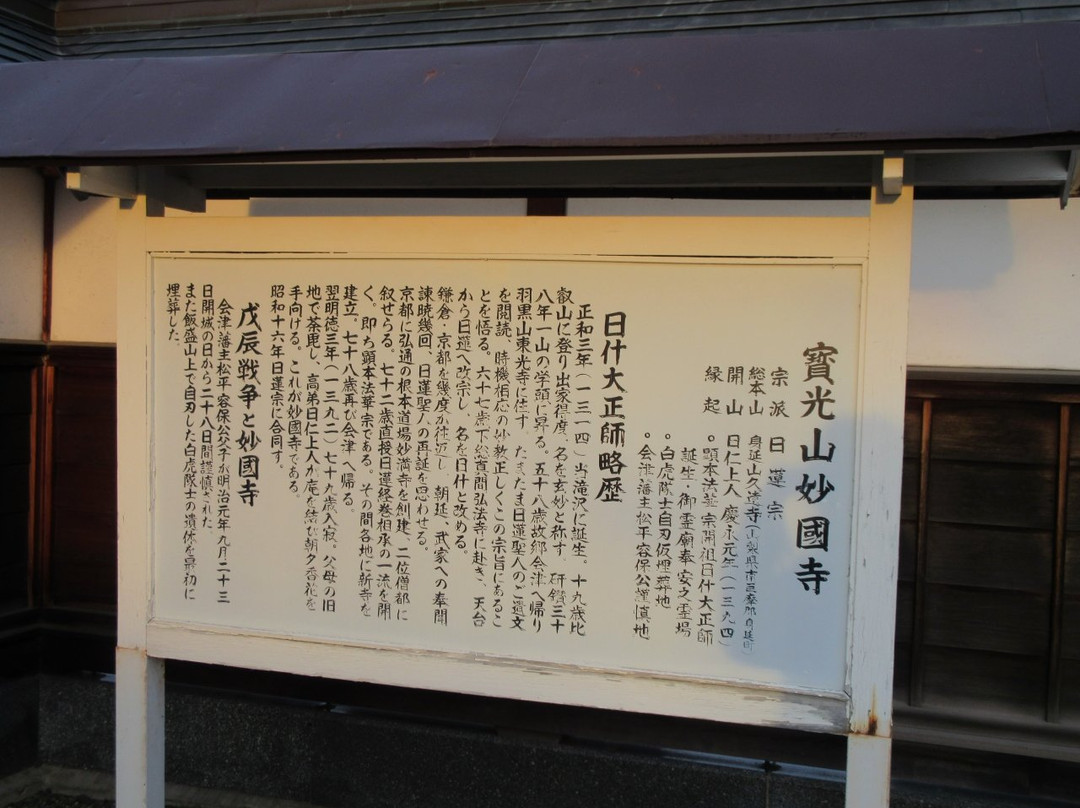 寶光山妙國寺
宗派 日蓮宗
総本山 身延山久遠寺(山梨県南巨摩郡身延町)
開山 日仁上人 慶永元年(一三九四)
縁起 ◦顕本法華宗開祖日什大正師
誕生・御霊廟奉安之霊場
◦白虎隊士自刃仮埋葬地
◦会津藩主松平容保公謹慎地
日什大正師略歴
正和三年(一三一四)当滝沢に誕生。十九歳比
叡山に登り出家得度、名を玄妙と称す。研鑽三十
八年一山の学頭に昇る。五十八歳故郷会津へ帰り
羽黒山東光寺に住す。たまたま日蓮聖人のご遺文
を閲読、時機相応の妙教正しくこの宗旨にあるこ
とを悟る。六十七歳下総真間弘法寺に赴き、天台
から日蓮へ改宗し、名を日什と改める。
鎌倉・京都を幾度か往返し、朝廷、武家への奉聞
諫暁幾回、日蓮聖人の再誕を思わせる。
京都に弘通の根本道場妙満寺を創建、二位僧都に
叙せらる。七十二歳直授日蓮経巻相承の一流を開
く。即ち顕本法華宗である。その間各地に新寺を
建立、七十八歳再び会津へ帰る。
翌明徳三年(一三九二)七十九歳入寂。父母の旧
地で荼毘し、高弟日仁上人が庵を結び朝夕香花を
手向ける。これが妙國寺である。
昭和十六年日蓮宗に合同。
戊辰戦争と妙國寺
会津藩主松平容保公父子が明治元年九月二十三
日開城の日から二十八日間謹慎された
また飯盛山上で自刃した白虎隊士の遺体を最初に
埋葬した。